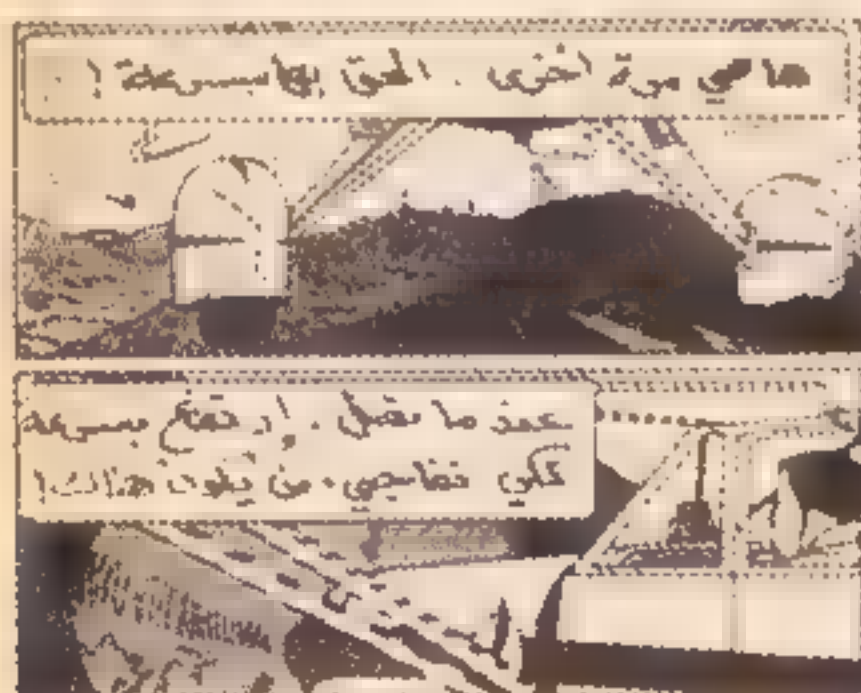 ها هي مرة اخرى . الحق بها بسرعة !
عند ما نصل . إرجع بسرعة
لكي تفاجىء من يكون هناك !